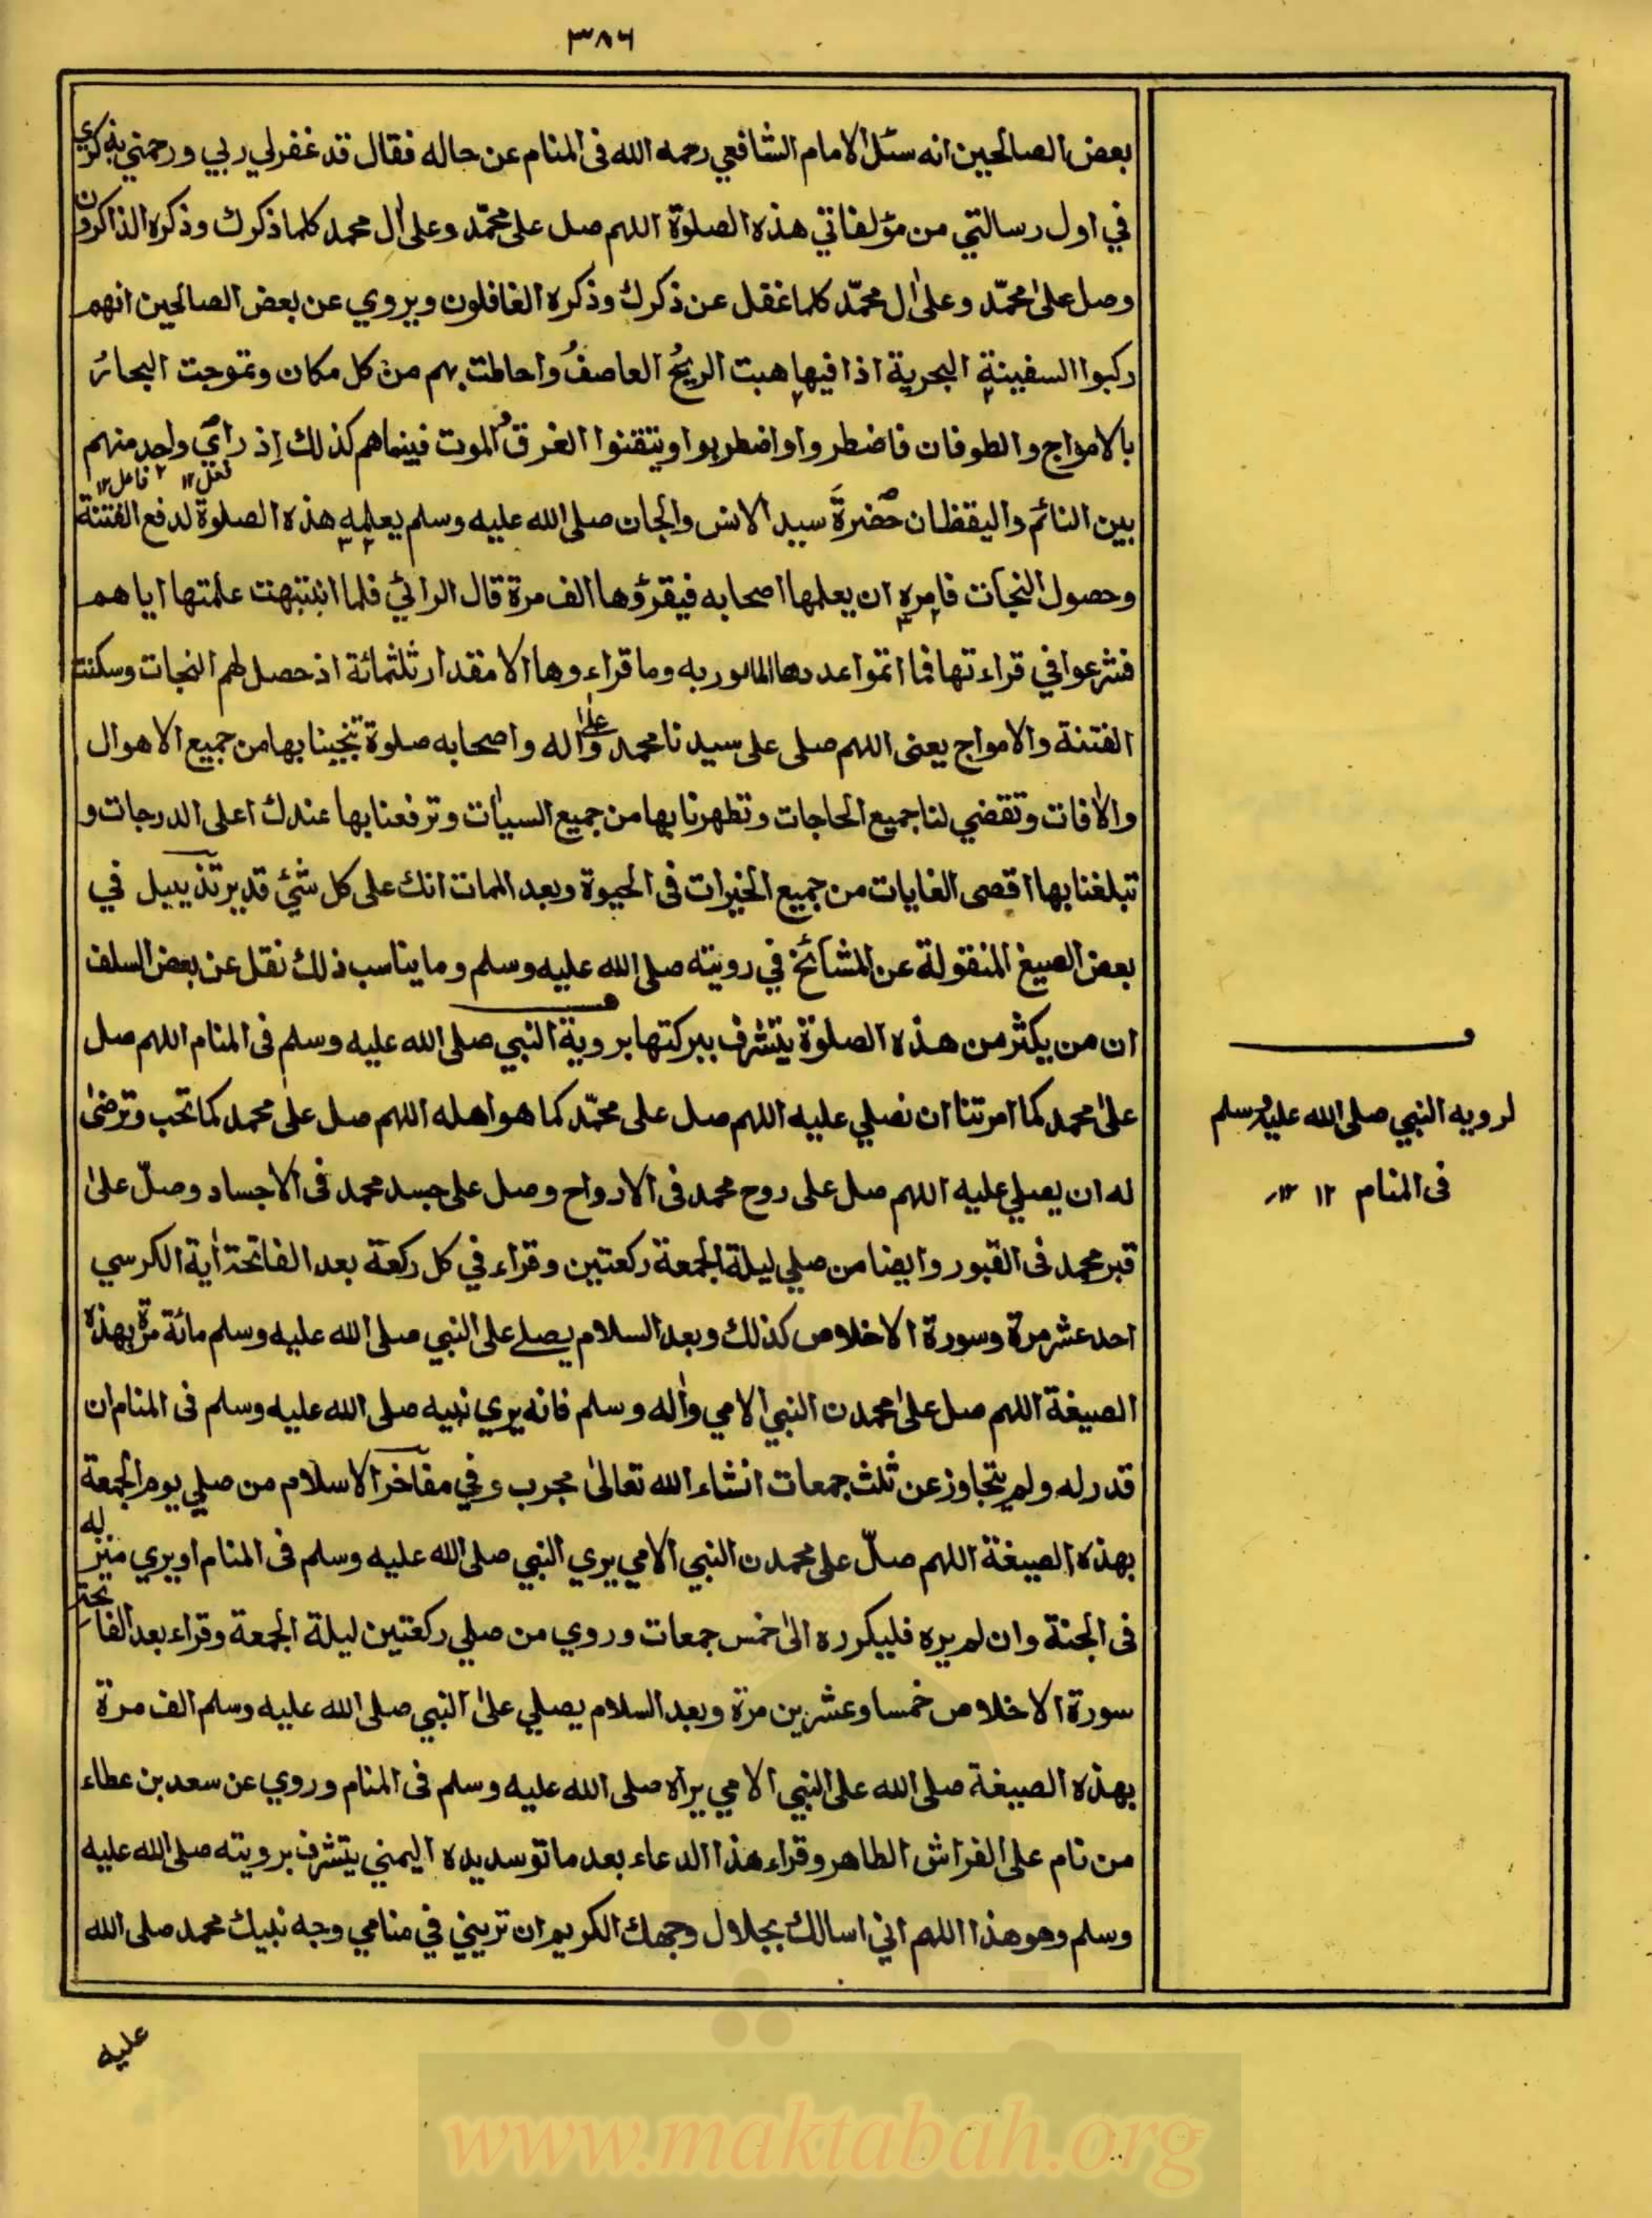 ٣٨٦
بعض الصالحين انه سئل الامام الشافعي رحمه الله فى المنام عن حاله فقال قد غفر لي ربي ورحمني بذكري
في اول رسالتي من مؤلفاتي هذه الصلوة اللهم صل على محمّد وعلى اٰل محمد كلما ذكرك وذكره الذاكرون
وصل علىٰ محمّد وعلىٰ اٰل محمّد كلما غفل عن ذكرك وذكره الغافلون ويروي عن بعض الصالحين انهم
ركبوا السفينة البحرية اذا فيها هبت الريحُ العاصفُ واحاطت بهم من كل مكان وتموجت البحارُ
بالامواج والطوفان فاضطروا واضطربوا ويتقنوا الغرق والموت فبينما هم كذلك اِذ راٰي واحد منهم
فعل ١٢ فاعل ١٢
بين النائم واليقظان حضرةَ سيد الانس والجان صلى الله عليه وسلم يعلمه هذه الصلوة لدفع الفتنة
وحصول النجات فامره ان يعلمها اصحابه فيقرؤها الف مرة قال الرائي فلما انتبهت علمتها اياهم
فشرعوا في قراءتها فما اتموا عددها المامور به وما قراءوها الا مقدار ثلثمائة اذ حصل لهم النجات وسكنت
الفتنة والامواج يعنى اللهم صلى على سيدنا محمد وعلىٰ اٰله واصحابه صلوة تنجينا بها من جميع الاهوال
والاٰفات وتقضي لنا جميع الحاجات وتطهرنا بها من جميع السياٰت وترفعنا بها عندك اعلى الدرجات و
تبلغنا بها اقصى الغايات من جميع الخيرات فى الحيوة وبعد الممات انك على كل شئ قدير تذييل في
بعض الصيغ المنقولة عن المشائخ في رويته صلى الله عليه وسلم وما يناسب ذلك نقل عن بعض السلف
ان من يكثر من هذه الصلوة يتشرف ببركتها بروية النبي صلى الله عليه وسلم فى المنام اللهم صل
علىٰ محمد كما امرتنا ان نصلي عليه اللهم صل على محمّد كما هو اهله اللهم صل علىٰ محمد كما تحب وترضىٰ
له ان يصلي عليه اللهم صل على روح محمد فى الارواح وصل على جسد محمد فى الاجساد وصلّ علىٰ
قبر محمد فى القبور وايضا من صلي ليلة الجمعة ركعتين وقراء في كل ركعة بعد الفاتحة اٰية الكرسي
احد عشر مرة وسورة الاخلاص كذلك وبعد السلام يصلے على النبي صلى الله عليه وسلم مائة مرة بهذه
الصيغة اللهم صل علىٰ محمدن النبي الامي واٰله وسلم فانه يري نبيه صلى الله عليه وسلم فى المنام ان
قدر له ولم يتجاوز عن ثلث جمعات انشاء الله تعالىٰ مجرب وفي مفاخر الاسلام من صلي يوم الجمعة
بهذه الصيغة اللهم صلّ على محمدن النبي الامي يري النبي صلى الله عليه وسلم فى المنام او يري منزله
فى الجنة وان لم يره فليكرره الىٰ خمس جمعات وروي من صلي ركعتين ليلة الجمعة وقراء بعد الفاتحة
سورة الاخلاص خمسا وعشرين مرة وبعد السلام يصلي علىٰ النبي صلى الله عليه وسلم الف مرة
بهذه الصيغة صلى الله على النبي الامي يراه صلى الله عليه وسلم فى المنام وروي عن سعد بن عطاء
من نام على الفراش الطاهر وقراء هذا الدعاء بعد ما توسد يده اليمني يتشرف برويته صلى الله عليه
وسلم وهو هذا اللهم اني اسالك بجلال وجهك الكريم ان تريني في منامي وجه نبيك محمد صلى الله
عليه
لرويه النبي صلى الله عليه وسلم
فى المنام ١٢ ١٢
www.maktabah.org